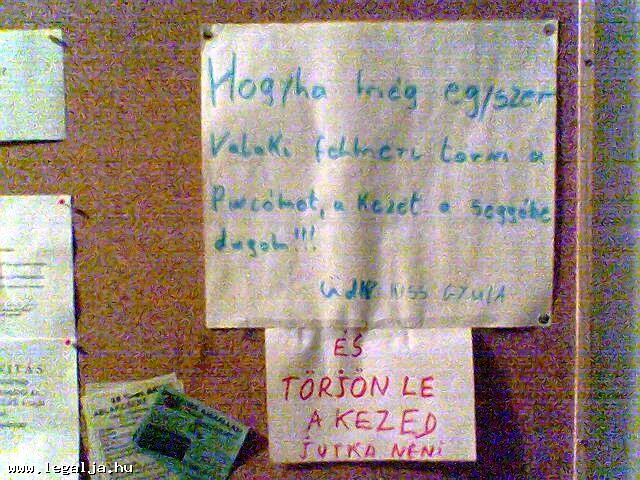 Hogyha még egyszer
Valaki felmeri törni a
Pucómat, a kezét a seggébe
dugom!!!
üdv KISS GYULA
ÉS
TÖRJÖN LE
A KEZED
JUTKA NÉNI
ITÁS
www.legalja.hu